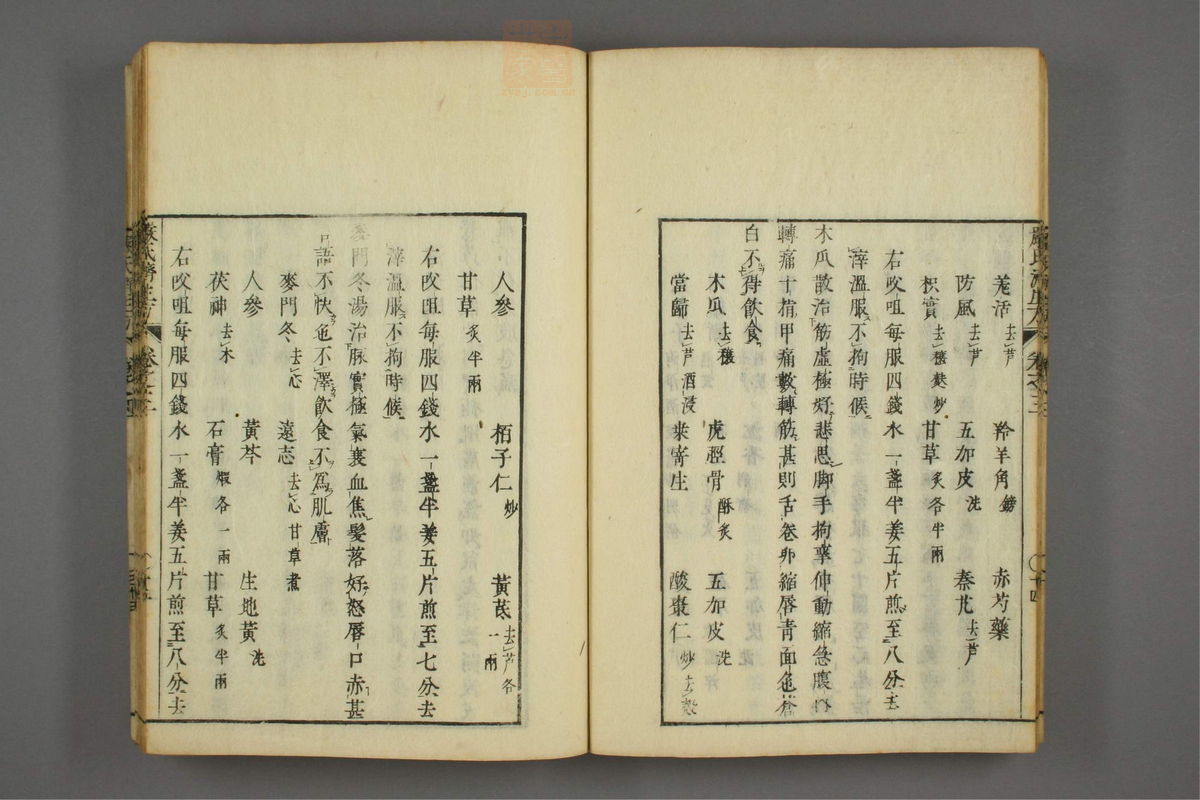 羗活去芦 羚羊角鎊 赤芍藥
防風去芦 五加皮洗 秦艽去芦
枳實去穰麸炒 甘草炙各半兩
右㕮咀每服四錢水一盞半姜五片煎至八分去
滓溫服不拘時候
木瓜散治筋虛極好悲思脚手拘攣伸動縮急腹內
轉痛十指甲痛數轉筋甚則舌卷卵縮唇青面色蒼
白不得飲食
木瓜去穰 虎脛骨酥炙 五加皮洗
當歸去芦酒浸 桒寄生 酸棗仁炒去殼
人參 栢子仁炒 黃茋去芦各一兩
甘草炙半兩
右㕮咀每服四錢水一盞半姜五片煎至七分去
滓溫服不拘時候
麥門冬湯治脉實極氣衰血焦髮落好怒唇口赤甚
言語不快色不澤飲食不爲肌膚
麥門冬去心 遠志去心甘草煮
人參 黃芩 生地黃洗
茯神去木 石膏煆各一兩 甘草炙半兩
右㕮咀每服四錢水一盞半姜五片煎至八分去